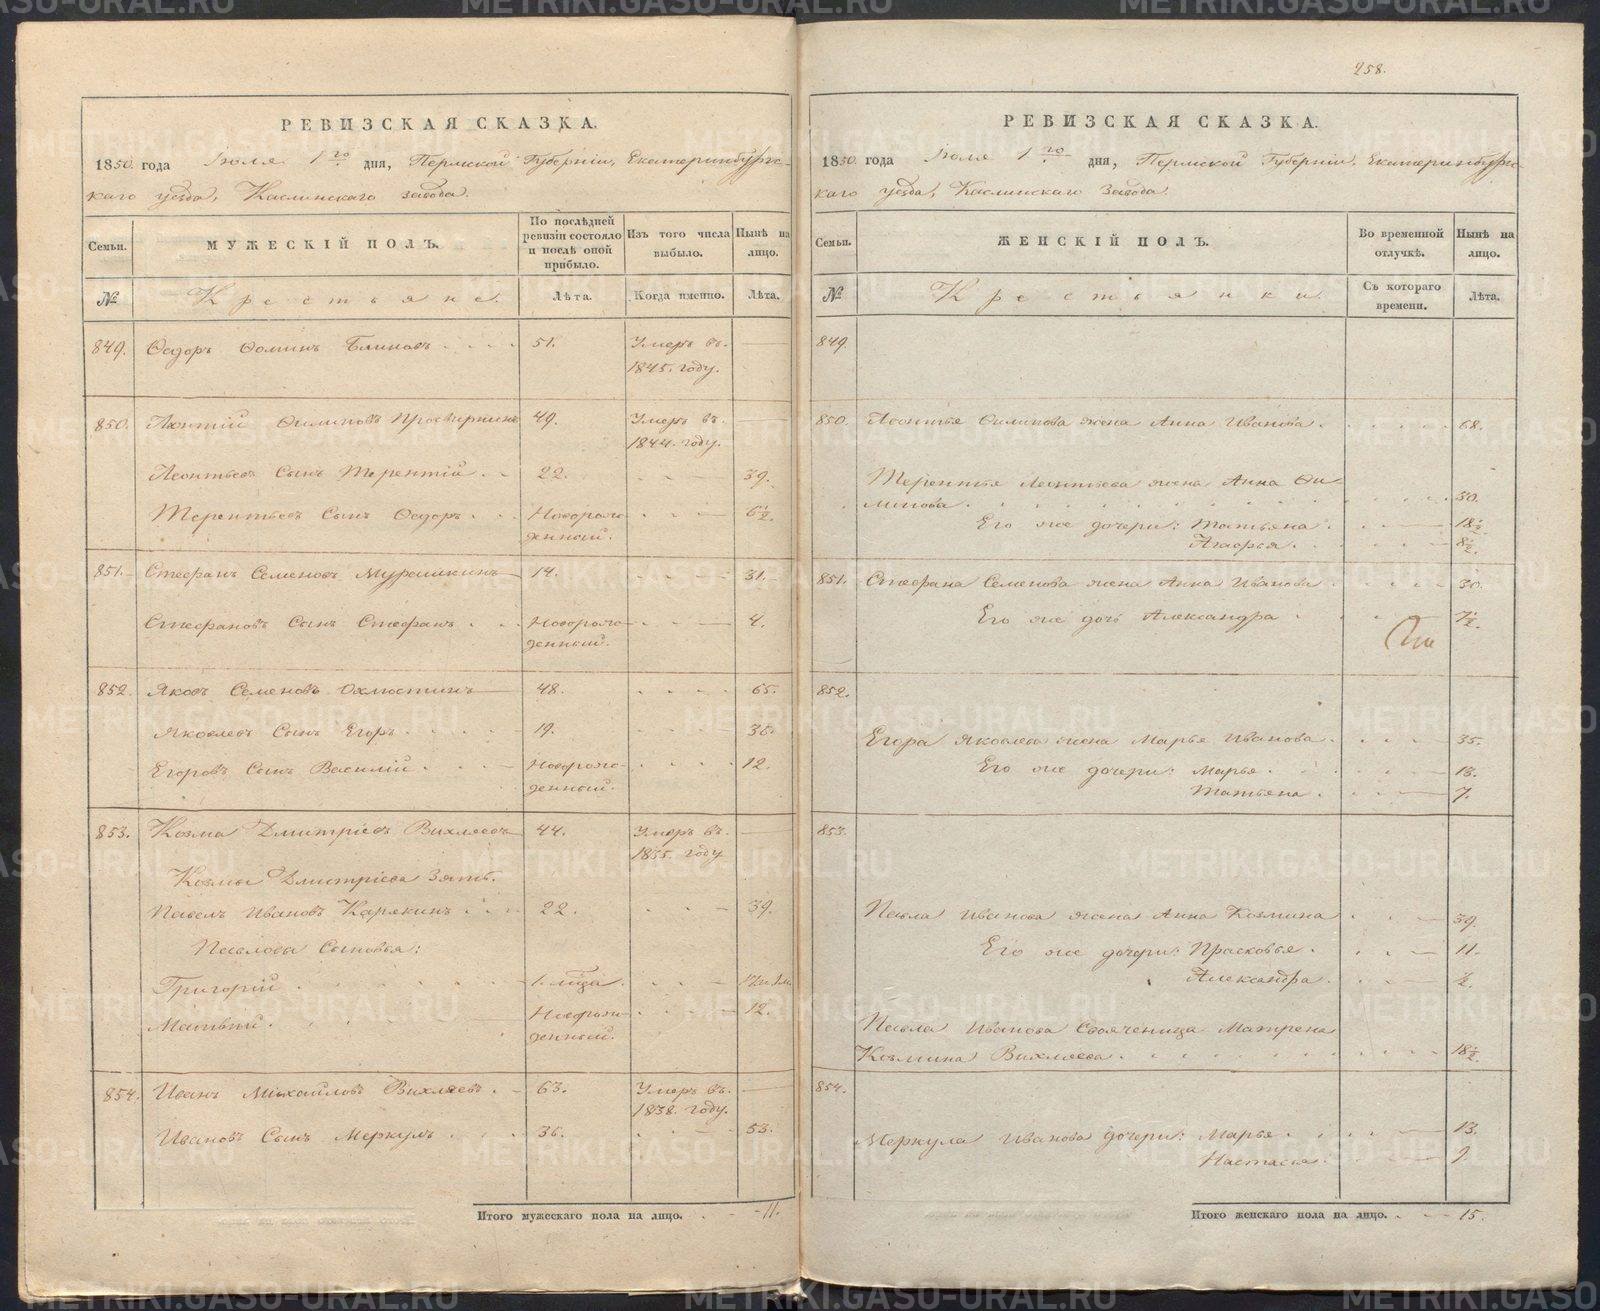 258.
РЕВИЗСКАЯ СКАЗКА.
1850 года Іюля 1го дня, Пермской Губерніи, Екатеринбургс-
каго уезда, Каслинскаго завода.
Семьи. МУЖЕСКІЙ ПОЛЪ. По послѣдней ревизіи состояло и послѣ оной прибыло. Изъ того числа выбыло. Нынѣ на лицо.
№ Крестьяне. Лѣта. Когда именно. Лѣта.
849. Ѳедоръ Ѳоминъ Блиновъ 51. Умеръ въ
1845. году.
850. Леонтій Филиповъ Просвирнинъ 49. Умеръ въ
1844. году.
Леонтьевъ Сынъ Терентій 22. 39.
Терентьевъ Сынъ Ѳедоръ Новорож- 6½.
денный.
851. Стефанъ Семеновъ Мурашкинъ 14. 31.
Стефановъ Сынъ Стефанъ Новорож- 4.
денный.
852. Яковъ Семеновъ Охлюстинъ 48. 65.
Яковлевъ Сынъ Егоръ 19. 36.
Егоровъ Сынъ Василій Новорож- 12.
денный.
853. Козма Дмитріевъ Вихляевъ 44. Умеръ въ
1835. году
Козмы Дмитріева Зять
Павелъ Ивановъ Карякинъ 22. 39.
Павлова Сыновья:
Григорій 1. мѣца.
Матвѣй Новорож- 12.
денный.
854. Иванъ Михайловъ Вихляевъ 63. Умеръ въ
1838. году.
Ивановъ Сынъ Меркулъ 36. 53.
Итого мужескаго пола на лицо. 11.
РЕВИЗСКАЯ СКАЗКА.
1850 года Іюля 1го дня, Пермской Губерніи, Екатеринбургс-
каго уезда, Каслинскаго Завода.
Семьи. ЖЕНСКІЙ ПОЛЪ. Во временной отлучкѣ. Нынѣ на лицо.
№ Крестьянки. Съ котораго времени. Лѣта.
849.
850. Леонтья Филипова жена Анна Иванова 68.
Терентья Леонтьева жена Анна Фи-
липова 30.
Его же дочери: Татьяна 18½.
Агафья 8½.
851. Стефана Семенова жена Анна Иванова 30.
Его же дочь Александра 7½.
852.
Егора Яковлева жена Марья Иванова 35.
Его же дочери: Марья 13.
Татьяна 7.
853.
Павла Иванова жена Анна Козмина 39.
Его же дочери: Прасковья 11.
Александра ½.
Павла Иванова Свояченица Матрена
Козмина Вихляева 18½.
854.
Меркула Иванова дочери: Марья 13.
Настасья 9.
Итого женскаго пола на лицо. 15.
METRIKI.GASO-URAL.RU